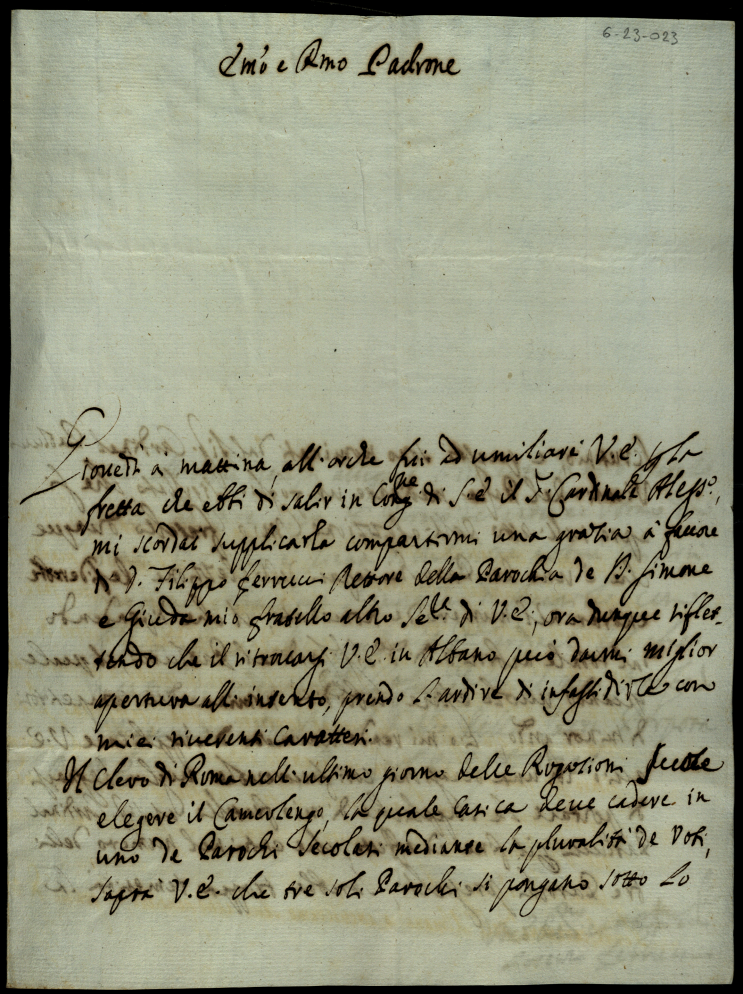 6-23-023
Em̃o e Rmo Padrone
Giovedì a mattina, all'orche fui ad umiliari V. E. p la
fretta che ebbi di salir in Congne di S. E il S. Cardinale Aless.o,
mi scordai supplicarla compartirmi una grazia à favore
di D. Filippo Ferrucci Rettore della Parochia de SS. Simone
e Giuda mio fratello altro Se.le di V. E., ora dunque rifles-
tendo che il ritrovarsi V. E. in Albano può darmi miglior
apertura all'intento, prendo l'ardire di infastidirla con
miei riverenti caratteri.
Il Clero di Roma nell'ultimo giorno delle Rogationi suole
elegere il Camerlengo, la quale carica deve cadere in
uno de Parochi secolari mediante la pluralità de voti,
saprà V. E. che tre soli Parochi si pongano sotto lo